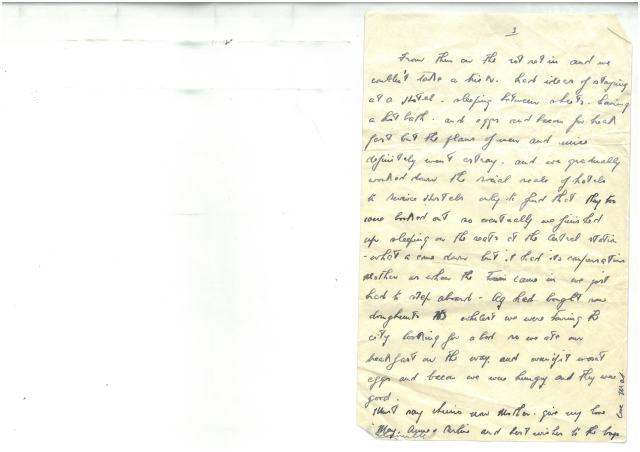 3
From then on the rot set in and we
couldn't take a trick. had ideas of staying
at a Hotel. sleeping between sheets. having
a hot bath. and eggs and bacon for break
fast but the plans of men and mice
definitely went astray. and we gradually
worked down the social scale of hotels
to service Hostels only to find that they too
were booked out so eventually we finished
up sleeping on the seats at the Central station
- what a come down but it had its compensations
Mother as when the train came in we just
had to step aboard - had bought some
doughnuts whilst we were touring the
city looking for a bed so we ate our
breakfast on the way and even if it wasn't
eggs and bacon we were hungry and they were
good.
Must say cheerio now Mother. give my love
May. Anne & and best wishes to the boys
love